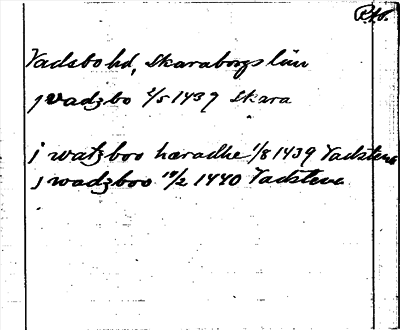 Vadsbo hd, Skaraborgs län
j vadzbo 2/5 1439 Skara
j watzboo hæradhe 1/8 1439 Vadstena
j wadzboo 10/2 1440 Vadstena